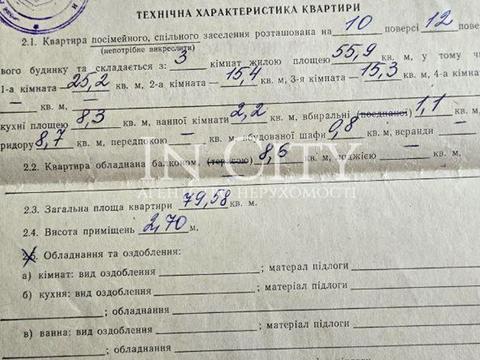 ТЕХНІЧНА ХАРАКТЕРИСТИКА КВАРТИРИ
2.1. Квартира посімейного, спільного заселення розташована на 10 поверсі 12 пове
(непотрібне викреслити)
вого будинку та складається з: 3 кімнат жилою площею 55,9 кв. м, у тому чи
1-а кімната 25,2 кв. м, 2-а кімната — 15,4 кв. м, 3-я кімната — 15,3 кв. м, 4-а кімнат
— кв. м, — кв. м,
кухні площею 8,3 кв. м, ванної кімнати 2,2 кв. м, вбиральні (поєднаної) 1,1 кв. м,
ридору 8,7 кв. м, передпокою — кв. м, вбудованої шафи 0,8 кв. м, веранди —
— кв. м.
2.2. Квартира обладнана балконом, (терасою) 8,6 кв. м, лоджією — кв. м.
IN CITY
АГЕНТСТВО НЕРУХОМОСТІ
2.3. Загальна площа квартири 79,58 кв. м.
2.4. Висота приміщень 2,70 м.
Обладнання та оздоблення:
а) кімнат: вид оздоблення ; матерал підлоги
б) кухня: вид оздоблення ; матеріал підлоги
; обладнання
в) ванна: вид оздоблення ; матеріал підлоги
; обладнання